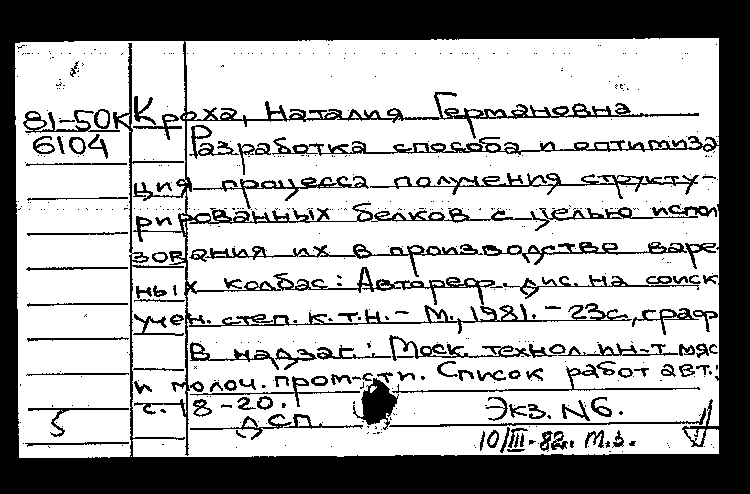 81-50к Кроха, Наталия Германовна
6104 Разработка способа и оптимиза
ция процесса получения структу-
рированных белков с целью испол
зования их в производстве варе
ных колбас: Автореф. дис. на соиск
учен. степ. к.т.н. - М., 1981. - 23с., граф
В надзаг.: Моск. технол. ин-т мяс
и молоч. пром-сти. Список работ авт.:
с. 18-20.
5 ДСП. Экз. N6.
10/III-82г. т.з.